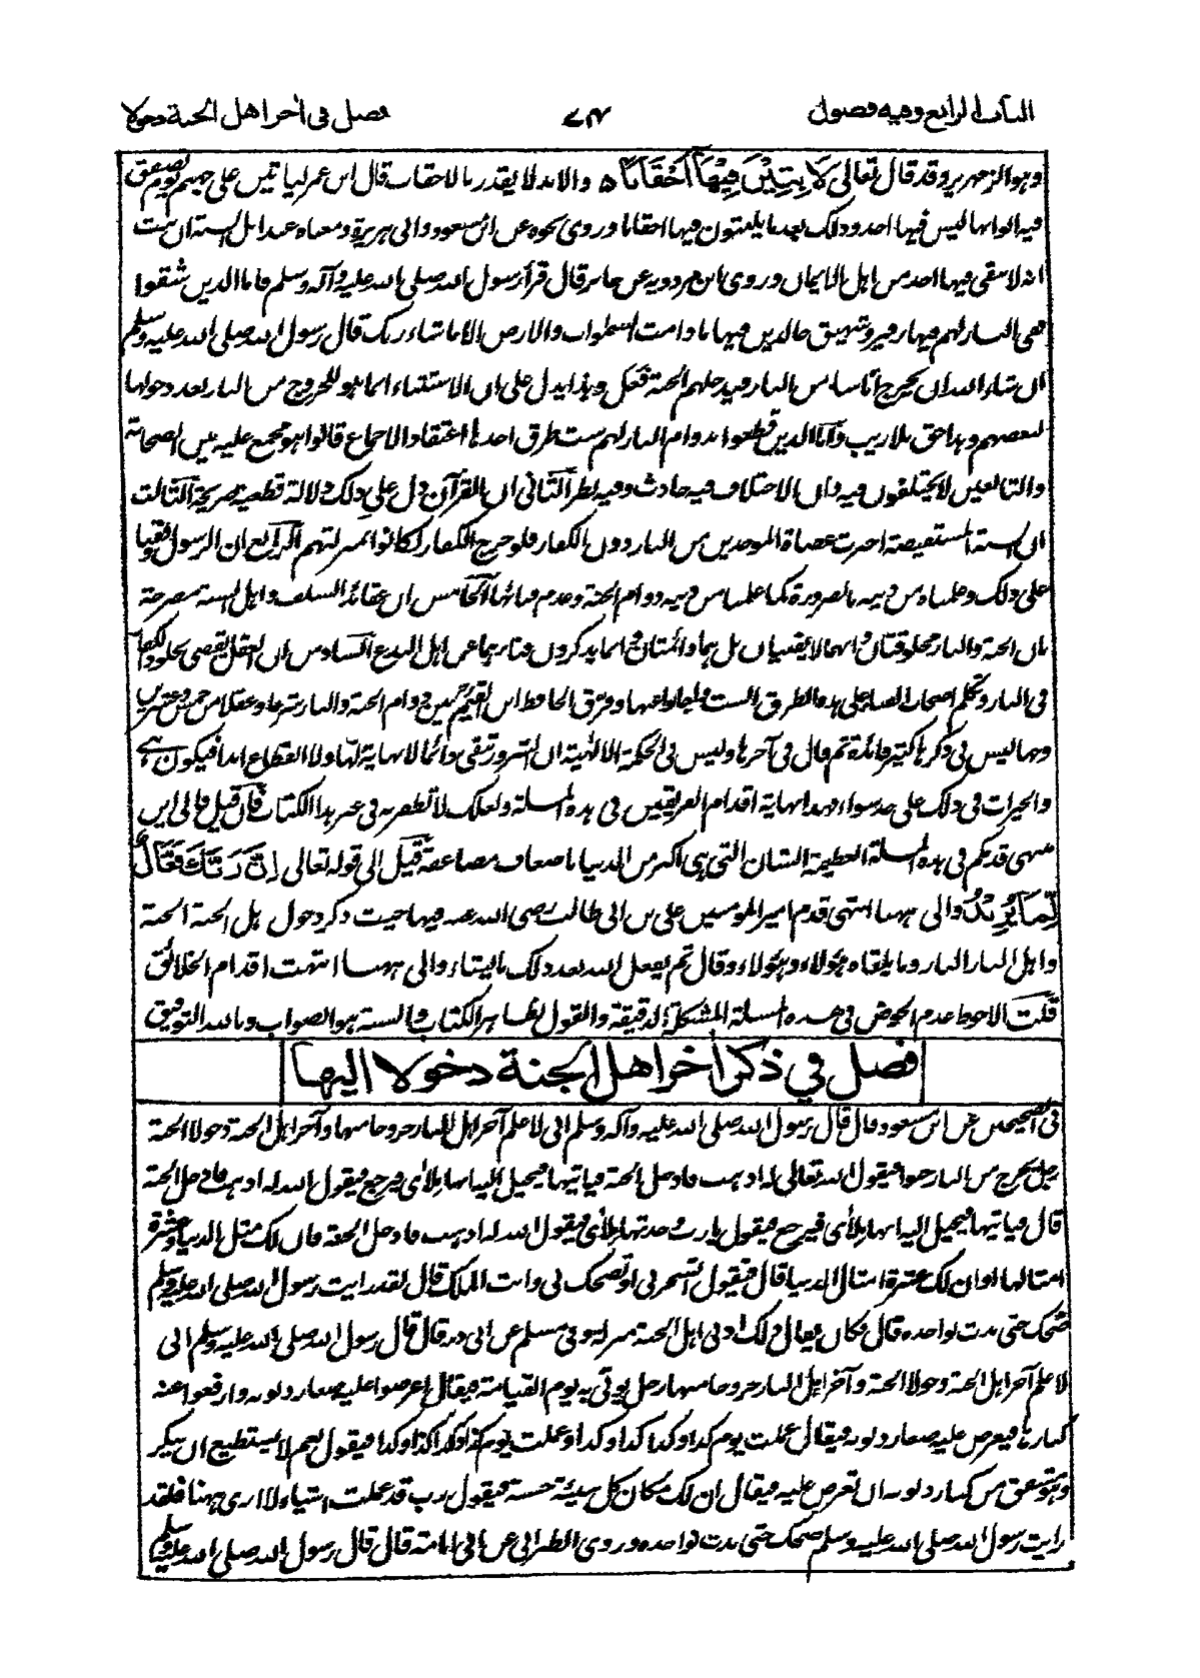 الباب الرابع وفيه فصول
فصل فى أخر اهل الجنة دخولا
وهو الزمهرير وقد قال تعالى لَابِثِيْنَ فِيْهَا أَحْقَابًا ه والابد لا يقدر بالاحقاب قال ابن عمر لياتين على جهنم يوم تصفق
فيه ابوابها ليس فيها احد وذلك بعد ما يلبثون فيها احقابا وروى نحوه عن ابن مسعود وابى هريرة ومعناه عند اهل السنة ان ثبت
انه لا يبقى فيها احد من اهل الايمان وروى ابن مردويه عن جابر قال قرأ رسول الله صلى الله عليه وآله وسلم فاما الذين شقوا
ففى النار لهم فيها زفير وشهيق خالدين فيها ما دامت السموات والارض الا ما شاء ربك قال رسول الله صلى الله عليه وسلم
ان شاء الله ان يخرج أناسا من النار فيدخلهم الجنة فعل وهذا يدل على ان الاستثناء انما هو للخروج من النار بعد دخولها
لبعضهم وهذا حق بلا ريب وأما الذين قطعوا بدوام النار لهم ست طرق احدها اعتقاد الاجماع قالوا هو مجمع عليه بين الصحابة
والتابعين لا يختلفون فيه وان الاختلاف فيه حادث وفيه نظر الثانى ان القرآن دل على ذلك دلالة قطعية صريحة الثالث
ان السنة المستفيضة اخبرت عصاة الموحدين من النار دون الكفار فلو خرج الكفار لكانوا بمنزلتهم الرابع ان الرسول وقفنا
على ذلك وعلمناه من دينه بالضرورة كما علمنا من دينه دوام الجنة وعدم فنائها الخامس ان عقائد السلف واهل السنة مصرحة
بان الجنة والنار مخلوقتان وانهما لا يفنيان بل هما دائمتان وانما يذكرون فناءهما عن اهل البدع السادس ان العقل يقضى بخلود الكفار
فى النار وتكلم اصحاب الفناء على هذه الطرق الست واجابوا عنها وفرق الحافظ ابن القيم بين دوام الجنة والنار شرعا وعقلا من
وجها ليس فى ذكرها كثير فائدة ثم قال فى آخرها وليس فى الحكمة الالهية ان الشرور تبقى دائما لا نهاية لها ولا انقطاع ابدا فيكون هى
والخيرات فى ذلك على حد سواء فهذا نهاية اقدام الفريقين فى هذه المسئلة ولعلك لا تظفر به فى غير هذا الكتاب فان قيل فالى اين
منتهى قدمكم فى هذه المسئلة العظيمة الشان التى هى اكبر من الدنيا باضعاف مضاعفة قيل الى قوله تعالى إِنَّ رَبَّكَ فَعَّالٌ
لِّمَا يُرِيْدُ والى ههنا انتهى قدم امير المومنين على بن ابى طالب رضى الله عنه فيها حيث ذكر دخول اهل الجنة الجنة
واهل النار النار وما يلقاه هؤلاء وهؤلاء وقال ثم يفعل الله بعد ذلك ما يشاء والى ههنا انتهت اقدام الخلائق
قلت الاحوط عدم الخوض فى هذه المسئلة المشكلة الدقيقة والقول بظاهر الكتاب والسنة هو الصواب وبالله التوفيق
فصل في ذكر أخر اهل الجنة دخولا اليها
فى الصحيحين عن ابن مسعود قال قال رسول الله صلى الله عليه وآله وسلم انى لاعلم آخر اهل النار خروجا منها وآخر اهل الجنة دخولا الجنة
رجل يخرج من النار حبوا فيقول الله تعالى له اذهب فادخل الجنة فياتيها فيخيل اليه انها ملأى فيرجع فيقول الله له اذهب فادخل الجنة
قال فياتيها فيخيل اليه انها ملأى فيرجع فيقول يا رب وجدتها ملأى فيقول الله له اذهب فادخل الجنة فان لك مثل الدنيا وعشرة
امثالها او ان لك عشرة امثال الدنيا قال فيقول اتسخر بى او تضحك بى وانت الملك قال لقد رايت رسول الله صلى الله عليه وسلم
ضحك حتى بدت نواجذه قال فكان يقال ذلك ادنى اهل الجنة منزلة وفى مسلم عن ابى ذر قال قال رسول الله صلى الله عليه وسلم انى
لاعلم آخر اهل الجنة دخولا الجنة وآخر اهل النار خروجا منها رجل يوتى به يوم القيامة فيقال اعرضوا عليه صغار ذنوبه وارفعوا عنه
كبارها فيعرض عليه صغار ذنوبه فيقال عملت يوم كذا وكذا كذا وكذا وعملت يوم كذا وكذا كذا وكذا فيقول نعم لا يستطيع ان ينكر
وهو مشفق من كبار ذنوبه ان تعرض عليه فيقال ان لك مكان كل سيئة حسنة فيقول رب قد عملت اشياء لا ارى ههنا فلقد
رايت رسول الله صلى الله عليه وسلم ضحك حتى بدت نواجذه وروى الطبرانى عن ابى امامة قال قال رسول الله صلى الله عليه وسلم